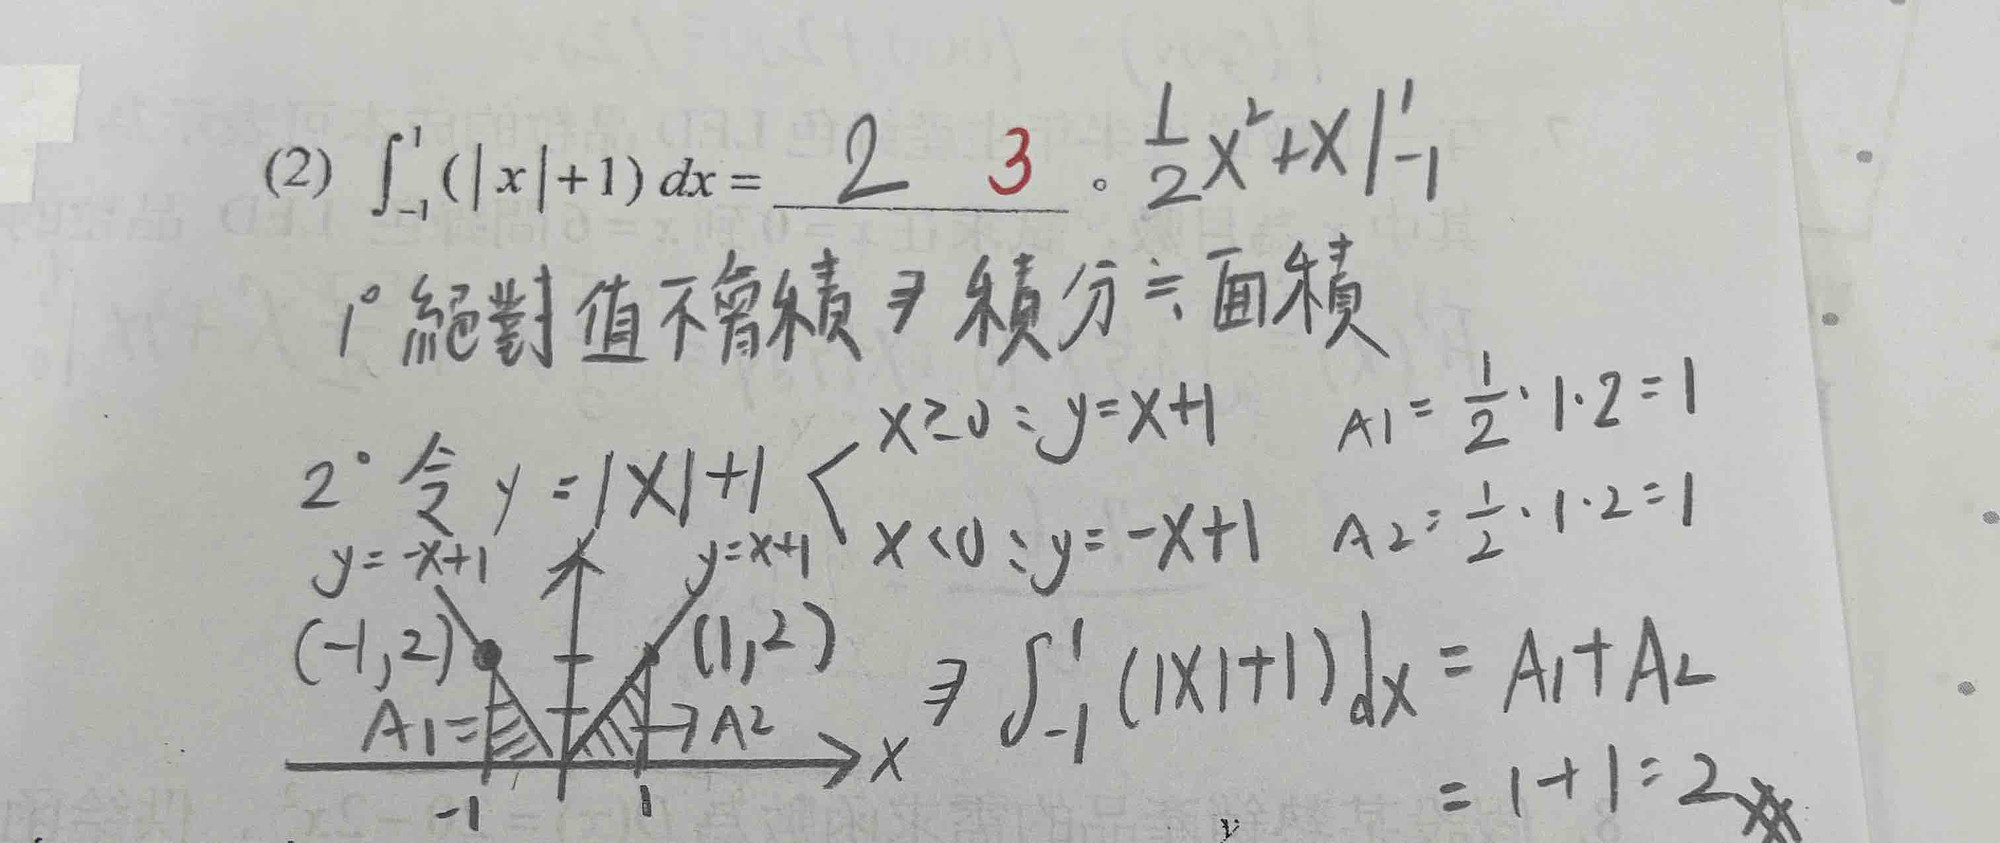 (2) ∫₋₁¹ (|x|+1) dx = 2 3 。 ½x²+x|₋₁¹
1° 絕對值不會積 ⇒ 積分≒面積
2° 令 y = |x|+1 < x≥0 : y=x+1 A1 = ½·1·2=1
x<0 : y=-x+1 A2 = ½·1·2=1
y=-x+1 y=x+1
(-1,2) (1,2)
A1= →A2
x
-1 1
⇒ ∫₋₁¹ (|x|+1) dx = A1+A2
= 1+1=2
y